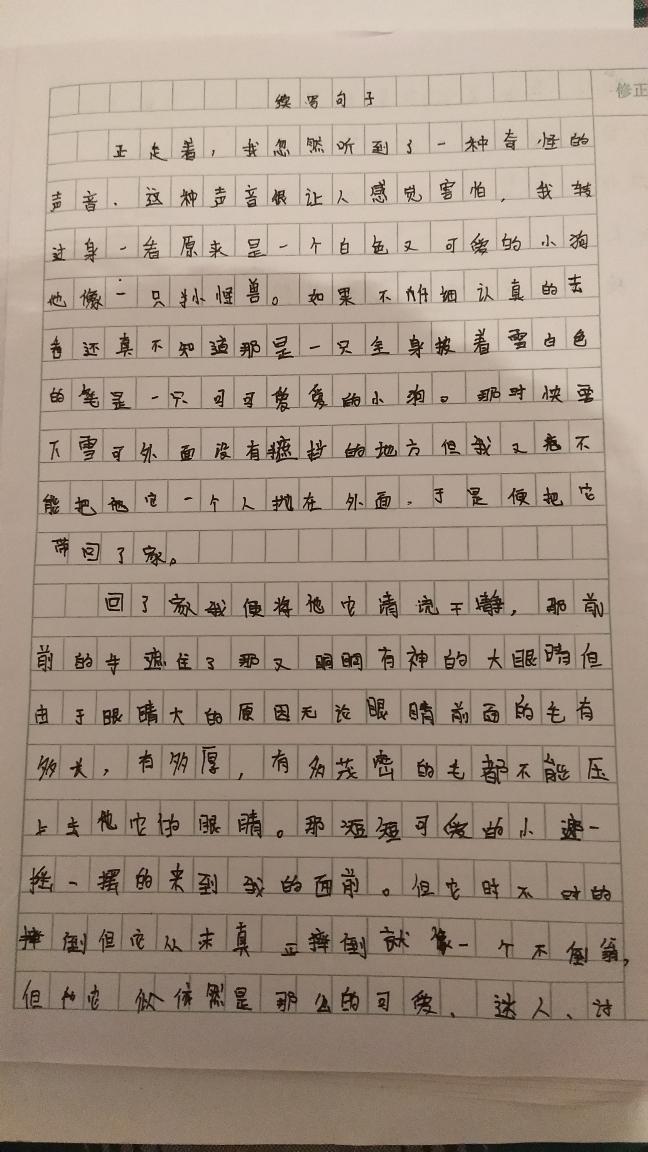 续写句子
修正
正走着，我忽然听到了一种奇怪的
声音。这种声音很让人感觉害怕，我转
过身一看原来是一个白色又可爱的小狗
他像一只小怪兽。如果不仔细认真的去
看还真不知道那是一只全身披着雪白色
的笔是一只可可爱爱的小狗。那时快要
下雪可外面没有遮挡的地方但我又不
能把它一个人抛在外面。于是便把它
带回了家。
回了家我便将它清洗干静，那前
前的毛遮住了那又炯炯有神的大眼睛但
由于眼睛大的原因无论眼睛前面的毛有
多长，有多厚，有多茂密的毛都不能压
上去它的眼睛。那短短可爱的小一
摇一摆的来到我的面前。但它时不时的
摔倒但它从未真正摔倒就像一个不倒翁，
但它依然是那么的可爱、迷人、讨